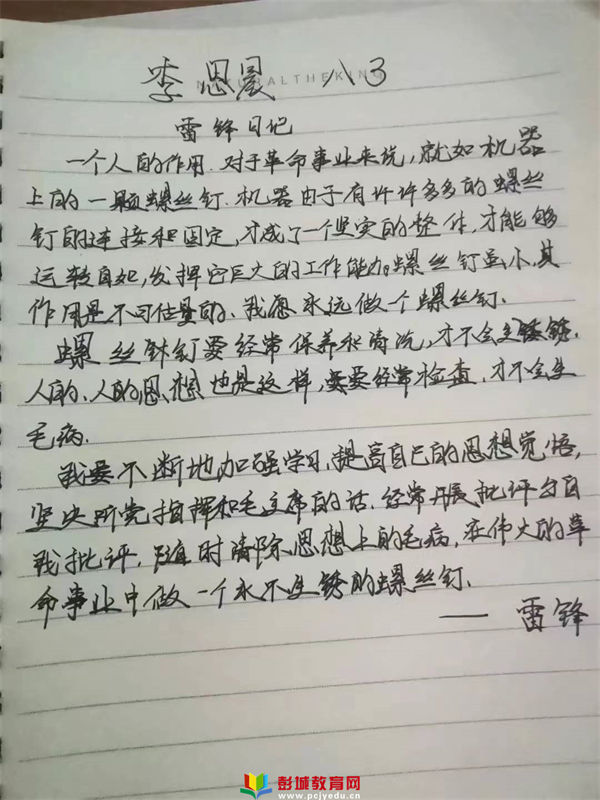 李思晨 八3
NATURALTHEKING
雷锋日记
一个人的作用.对于革命事业来说,就如机器
上的一颗螺丝钉.机器由于有许许多多的螺丝
钉的连接和固定,才成了一个坚实的整体,才能够
运转自如,发挥它巨大的工作能力。螺丝钉虽小,其
作用是不可估量的.我愿永远做一个螺丝钉.
螺丝钉要经常保养和清洗,才不会生锈.
人的、人的思想也是这样,要经常检查.才不会生
毛病.
我要不断地加强学习,提高自己的思想觉悟,
坚决听党指挥和毛主席的话.经常开展批评自
我批评.随时清除思想上的毛病.在伟大的革
命事业中做一个永不生锈的螺丝钉.
——雷锋
彭城教育网
www.pcjyedu.cn